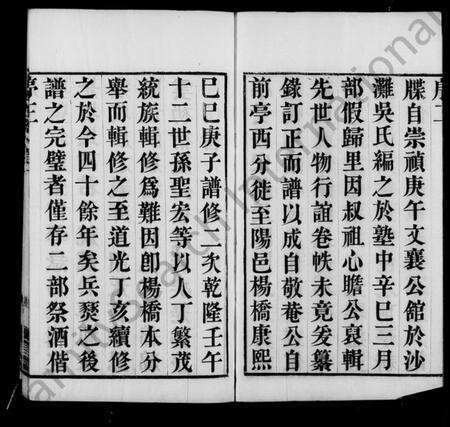 序二
牒自崇禎庚午文襄公館於沙
灘吳氏編之於塾中辛巳三月
部假歸里因叔祖心瞻公裒輯
先世人物行誼卷帙未竟爰纂
錄訂正而譜以成自敬菴公自
前亭西分徙至陽邑楊橋康熙
己巳庚子譜修二次乾隆壬午
十二世孫聖宏等以人丁繁茂
統族輯修為難因卽楊橋本分
舉而輯修之至道光丁亥續修
之於今四十餘年矣兵燹之後
譜之完璧者僅存二部祭酒偕